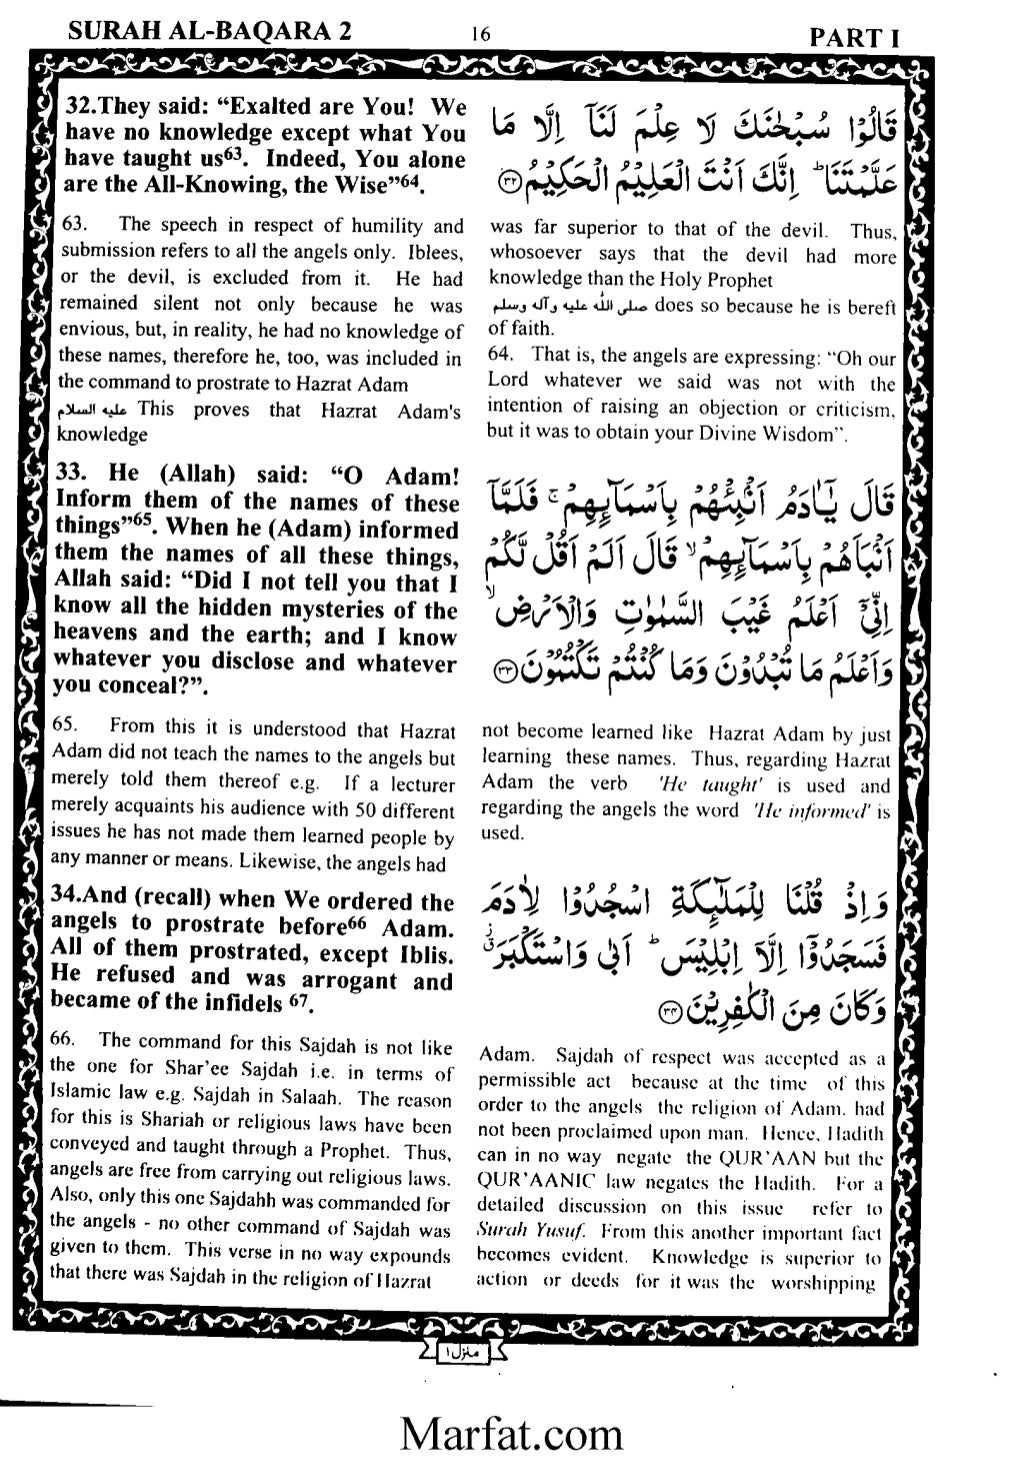 SURAH AL-BAQARA 2
16
PART I
32.They said: “Exalted are You! We
have no knowledge except what You
have taught us63. Indeed, You alone
are the All-Knowing, the Wise”64.
قَالُوْا سُبْحٰنَكَ لَا عِلْمَ لَنَآ اِلَّا مَا
عَلَّمْتَنَا ؕ اِنَّكَ اَنْتَ الْعَلِيْمُ الْحَكِيْمُ ۝۳۲
63. The speech in respect of humility and
submission refers to all the angels only. Iblees,
or the devil, is excluded from it. He had
remained silent not only because he was
envious, but, in reality, he had no knowledge of
these names, therefore he, too, was included in
the command to prostrate to Hazrat Adam
عليه السلام This proves that Hazrat Adam's
knowledge
was far superior to that of the devil. Thus,
whosoever says that the devil had more
knowledge than the Holy Prophet
صلى الله عليه وآله وسلم does so because he is bereft
of faith.
64. That is, the angels are expressing: “Oh our
Lord whatever we said was not with the
intention of raising an objection or criticism,
but it was to obtain your Divine Wisdom”.
33. He (Allah) said: “O Adam!
Inform them of the names of these
things”65. When he (Adam) informed
them the names of all these things,
Allah said: “Did I not tell you that I
know all the hidden mysteries of the
heavens and the earth; and I know
whatever you disclose and whatever
you conceal?”.
قَالَ يٰٓاٰدَمُ اَنْۢبِئْهُمْ بِاَسْمَآىِٕهِمْ ۚ فَلَمَّآ
اَنْۢبَاَهُمْ بِاَسْمَآىِٕهِمْ ۙ قَالَ اَلَمْ اَقُلْ لَّكُمْ
اِنِّيْٓ اَعْلَمُ غَيْبَ السَّمٰوٰتِ وَالْاَرْضِ ۙ
وَاَعْلَمُ مَا تُبْدُوْنَ وَمَا كُنْتُمْ تَكْتُمُوْنَ ۝۳۳
65. From this it is understood that Hazrat
Adam did not teach the names to the angels but
merely told them thereof e.g. If a lecturer
merely acquaints his audience with 50 different
issues he has not made them learned people by
any manner or means. Likewise, the angels had
not become learned like Hazrat Adam by just
learning these names. Thus, regarding Hazrat
Adam the verb 'He taught' is used and
regarding the angels the word 'He informed' is
used.
34.And (recall) when We ordered the
angels to prostrate before66 Adam.
All of them prostrated, except Iblis.
He refused and was arrogant and
became of the infidels 67.
وَاِذْ قُلْنَا لِلْمَلٰٓىِٕكَةِ اسْجُدُوْا لِاٰدَمَ
فَسَجَدُوْٓا اِلَّآ اِبْلِيْسَ ؕ اَبٰى وَاسْتَكْبَرَ ۫
وَكَانَ مِنَ الْكٰفِرِيْنَ ۝۳۴
66. The command for this Sajdah is not like
the one for Shar’ee Sajdah i.e. in terms of
Islamic law e.g. Sajdah in Salaah. The reason
for this is Shariah or religious laws have been
conveyed and taught through a Prophet. Thus,
angels are free from carrying out religious laws.
Also, only this one Sajdahh was commanded for
the angels - no other command of Sajdah was
given to them. This verse in no way expounds
that there was Sajdah in the religion of Hazrat
Adam. Sajdah of respect was accepted as a
permissible act because at the time of this
order to the angels the religion of Adam. had
not been proclaimed upon man. Hence, Hadith
can in no way negate the QUR’AAN but the
QUR’AANIC law negates the Hadith. For a
detailed discussion on this issue refer to
Surah Yusuf. From this another important fact
becomes evident. Knowledge is superior to
action or deeds for it was the worshipping
منزل ۱
Marfat.com